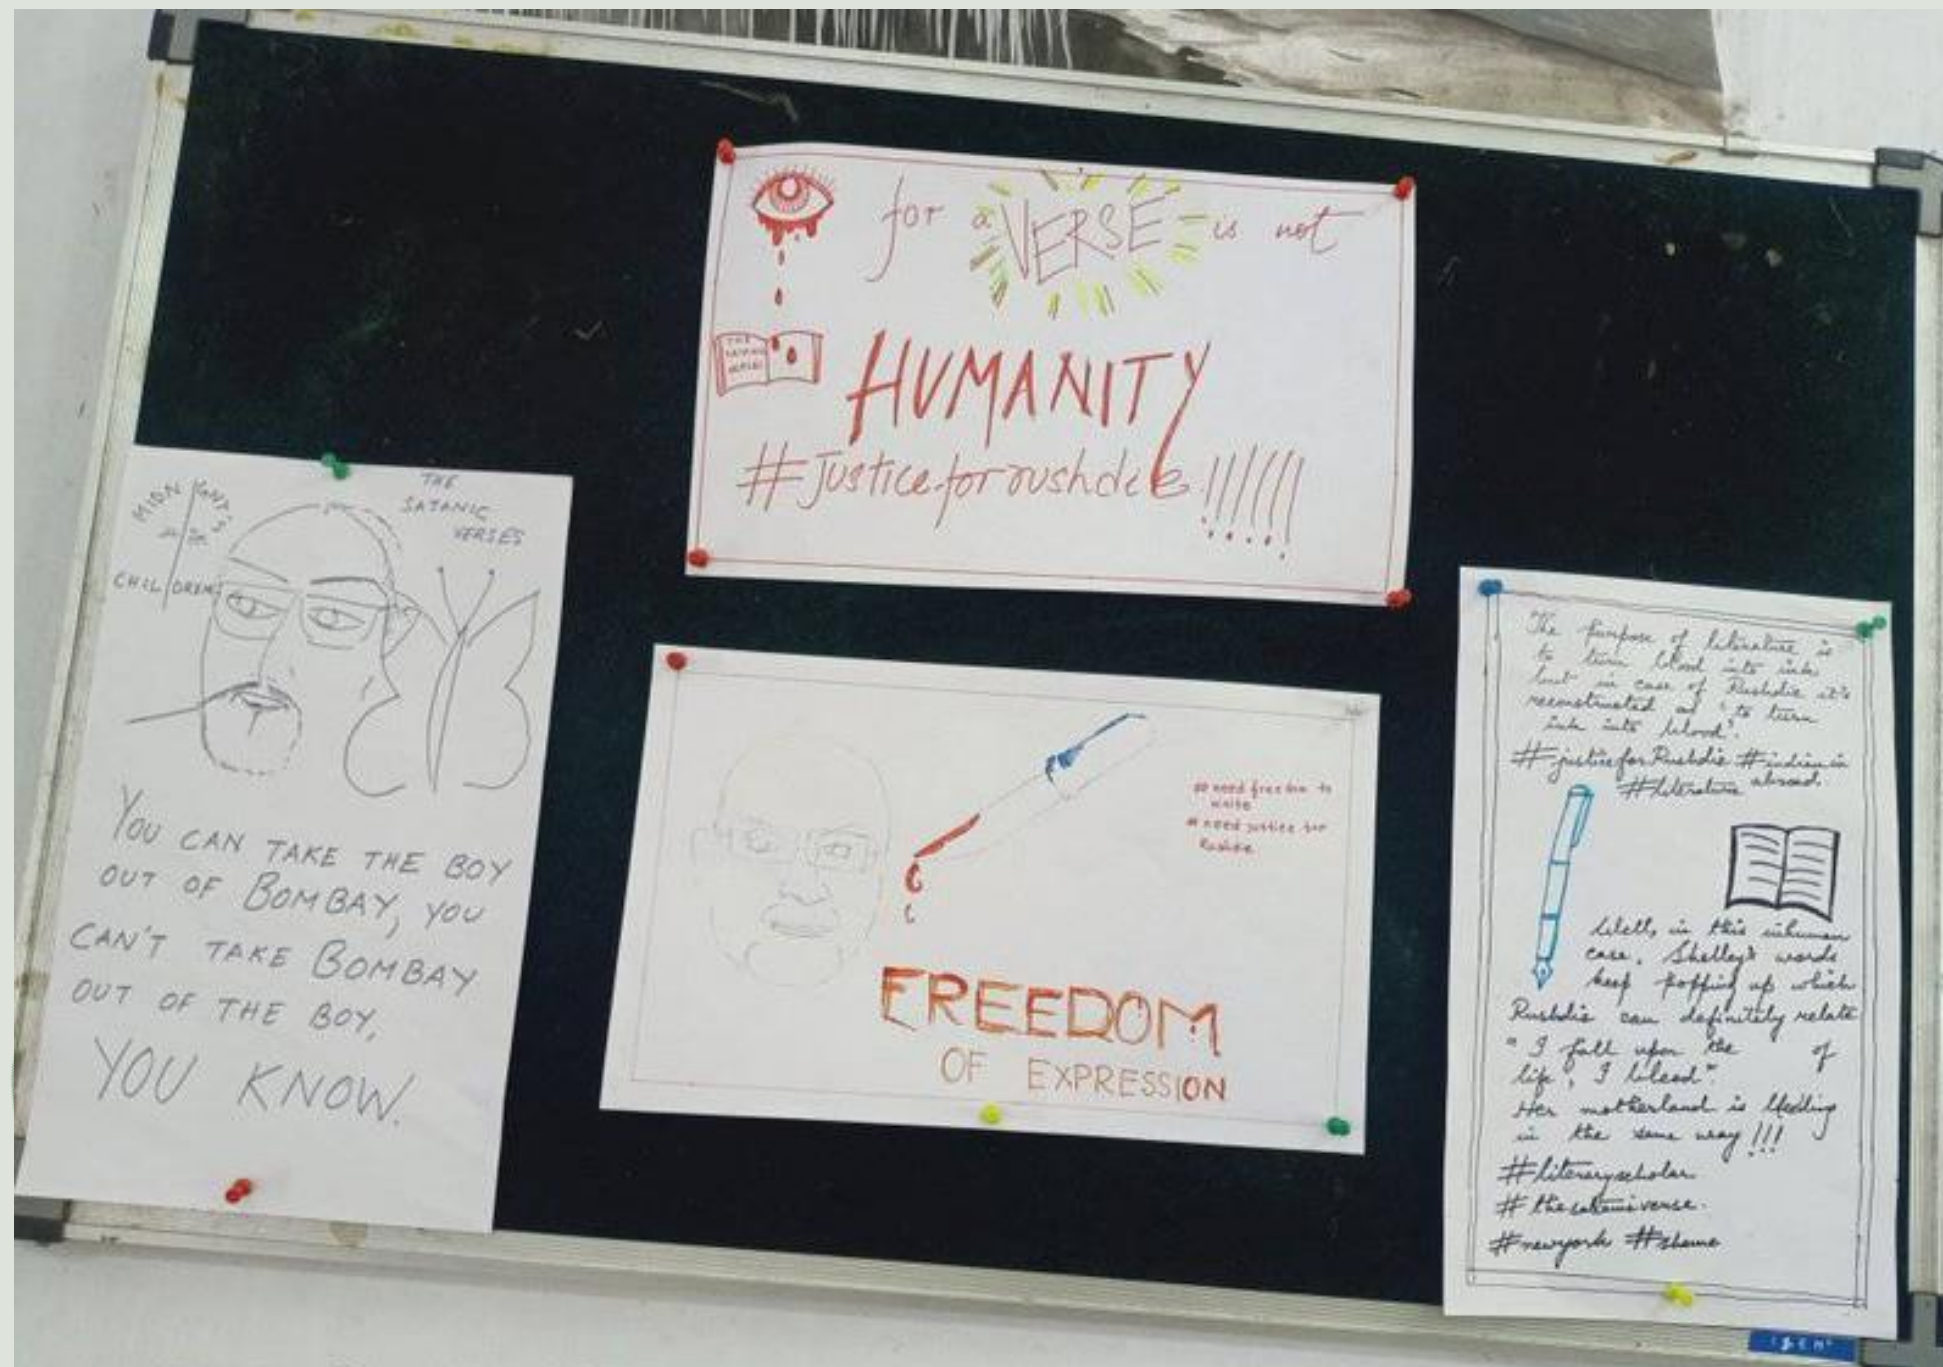 for a VERSE is not
THE
SATANIC
VERSES
HUMANITY
#Justiceforrushdie!!!!!!
MIDNIGHT'S
CHILDREN
THE
SATANIC
VERSES
YOU CAN TAKE THE BOY
OUT OF BOMBAY, YOU
CAN'T TAKE BOMBAY
OUT OF THE BOY,
YOU KNOW.
# need freedom to
write
# need justice for
Rushdie
FREEDOM
OF EXPRESSION
The purpose of literature is
to turn blood into ink
but in case of Rushdie it's
reconstructed as "to turn
ink into blood".
#justiceforRushdie #indian in
#literature abroad
Well, in this inhuman
case, Shelley's words
keep popping up which
Rushdie can definitely relate
"I fall upon the of
life, I bleed".
Her motherland is bleeding
in the same way!!!
#literaryscholar
#thesatanicverse.
#newyork #shame